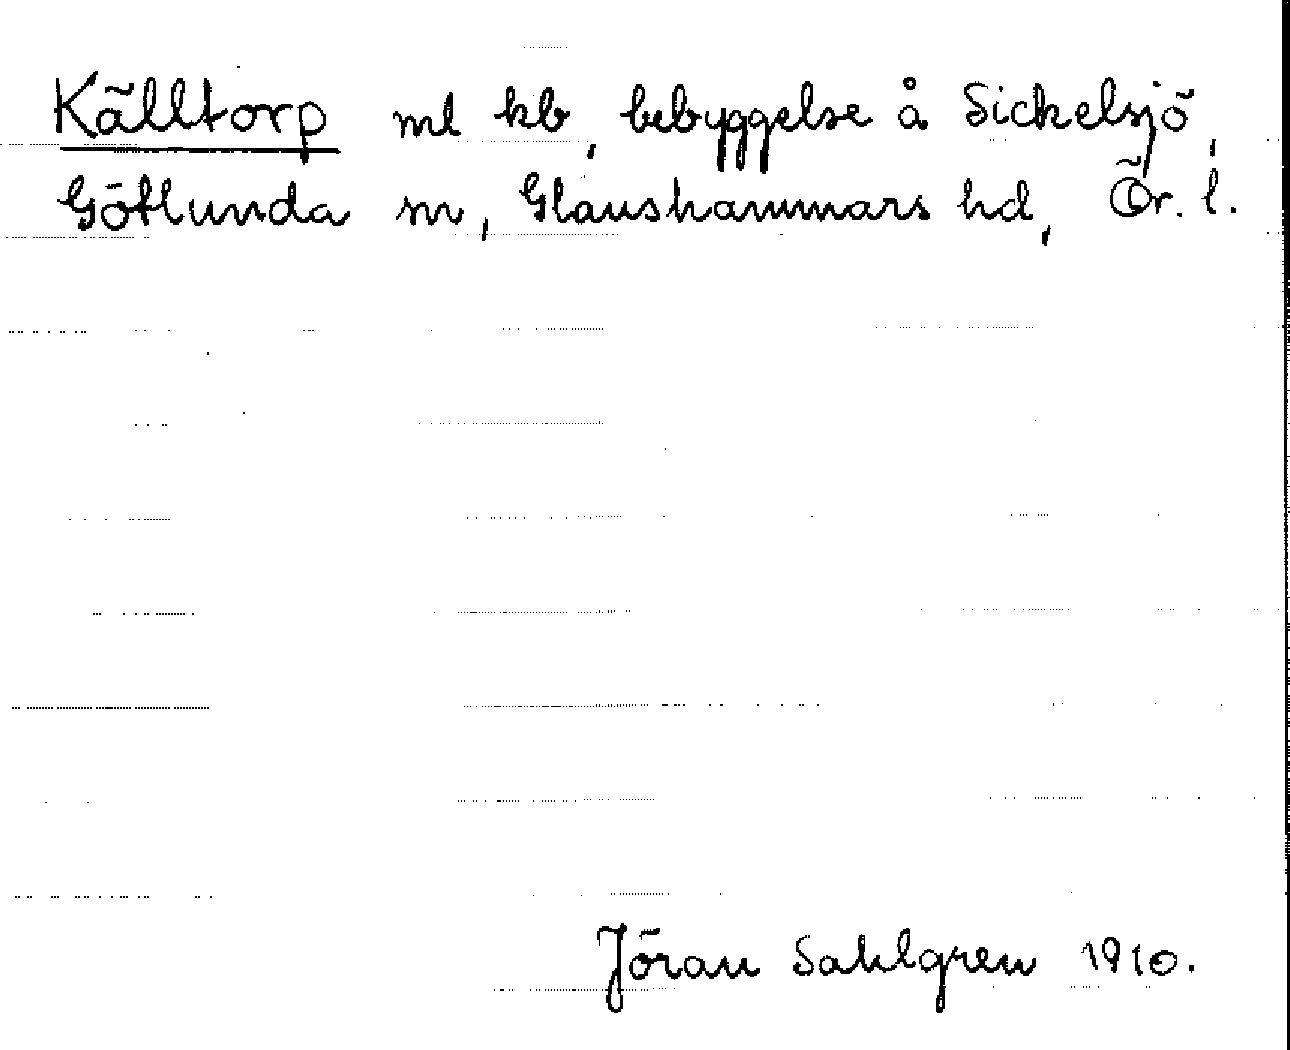 Källtorp ml kb, bebyggelse å Sickelsjö,
Götlunda sn, Glanshammars hd, Ör. l.
Jöran Sahlgren 1910.